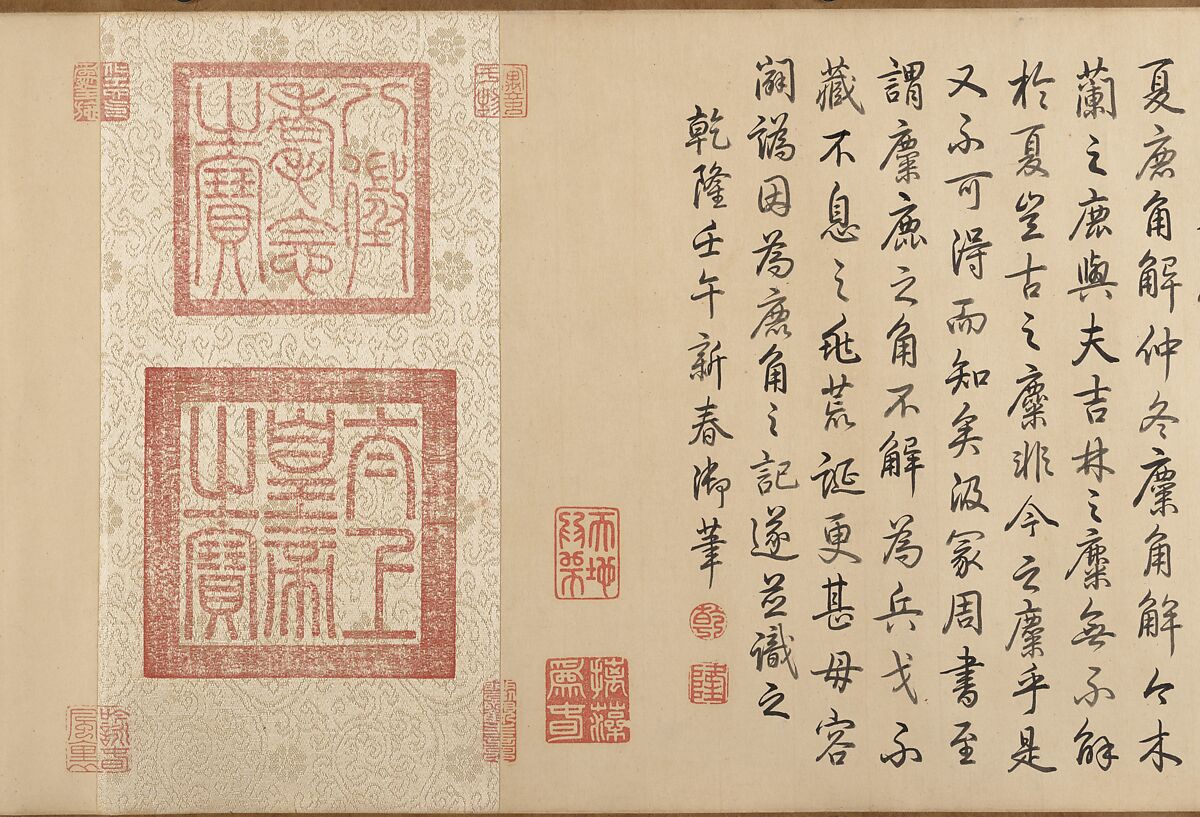 夏鹿角解仲冬麋角解今木
蘭之鹿與夫吉林之麋無不解
於夏豈古之麋非今之麋乎是
又不可得而知矣汲冢周書至
謂麋鹿之角不解為兵戈不
藏不息之兆荒誕更甚毋容
闢譌因為鹿角之記遂並識之
乾隆壬午新春御筆
乾
隆
天地為架
摛藻為春
八徵耄念之寶
太上皇帝之寶